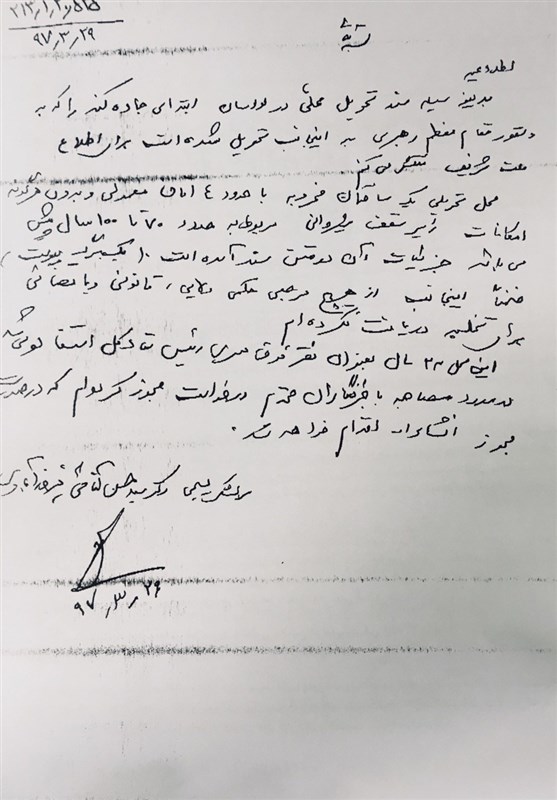 ۳۱۳/۱/۲
۹۷/۳/۲۹
اطلاعیه
بدینوسیله سند تحویل محلی در لواسان ابتدای جاده کند را که به
دستور مقام معظم رهبری به اینجانب تحویل شده است برای اطلاع
ملت شریف منتشر می کنم
محل تحویلی یک ساختمان مخروبه با حدود ۴ اتاق معمولی و بدون هرگونه
امکانات زیر سقف شیروانی مربوط به حدود ۷۰ تا ۱۰۰ سال پیش
می باشد جزئیات آن در متن سند آمده است (یک برگ پیوست)
ضمناً اینجانب از هیچ مرجعی حکمی ولایی، قانونی و یا قضائی
برای تخلیه دریافت نکرده ام
این محل ۲۳ سال بعنوان دفتر فرماندهی رئیس ستاد کل استفاده می شد
در مورد مصاحبه با خبرنگاران محترم درخواست مجوز کرده ام که در صورت
مجوز انشاءالله اقدام خواهد شد.
سرلشکر بسیجی دکتر سید حسن فیروزآبادی
۹۷/۳/۲۹